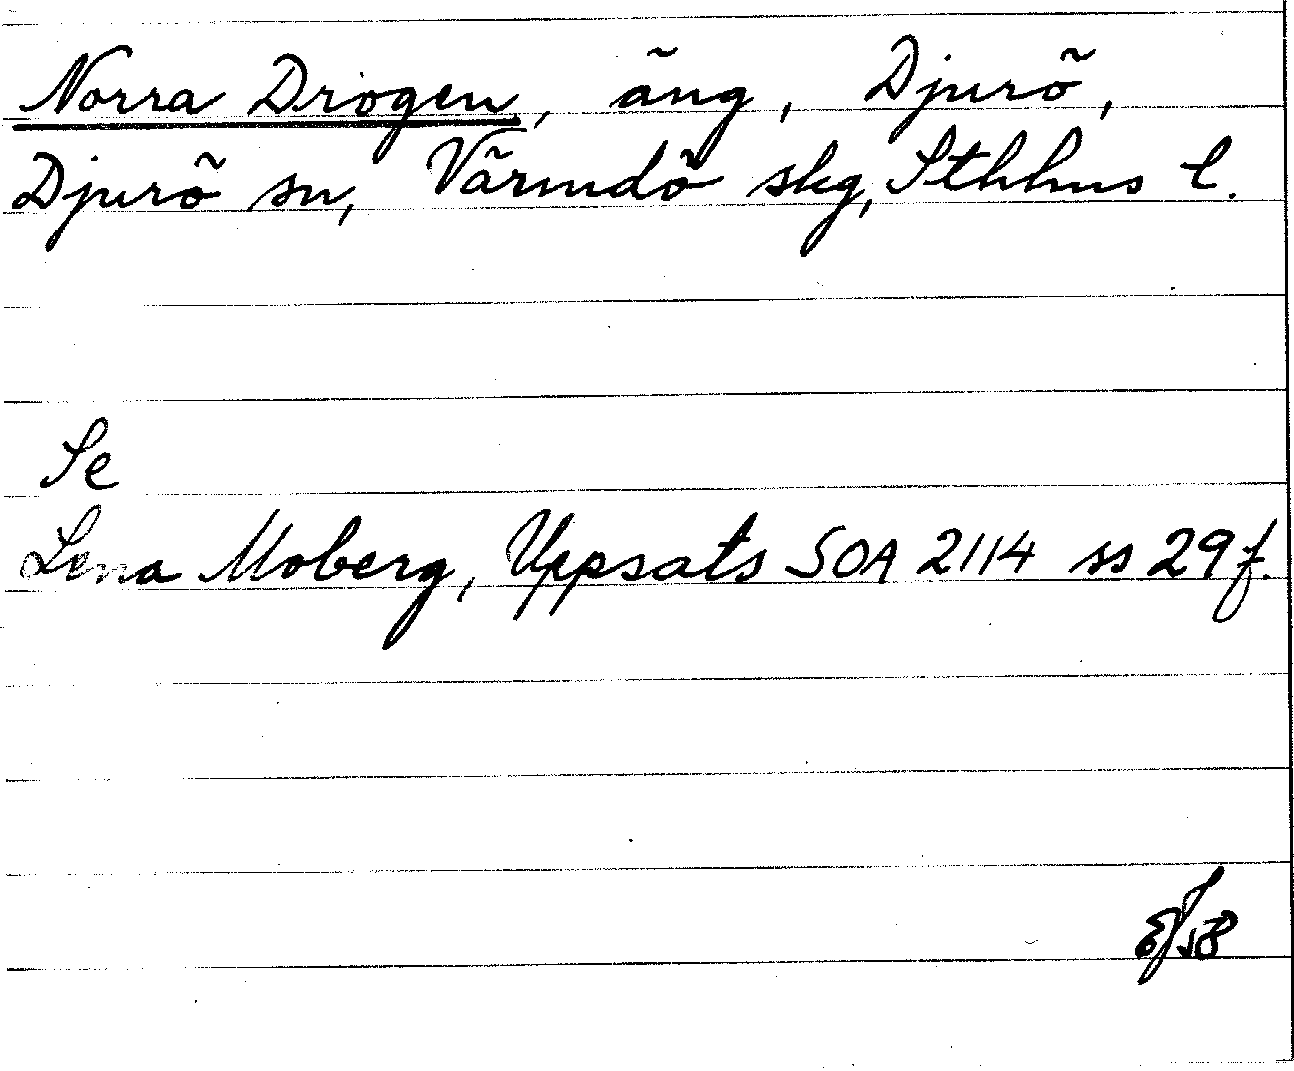 Norra Drogen, äng, Djurö,
Djurö sn, Värmdö skg, Sthlms l.
Se
Lena Moberg, Uppsats SOA 2114 ss 29 f.